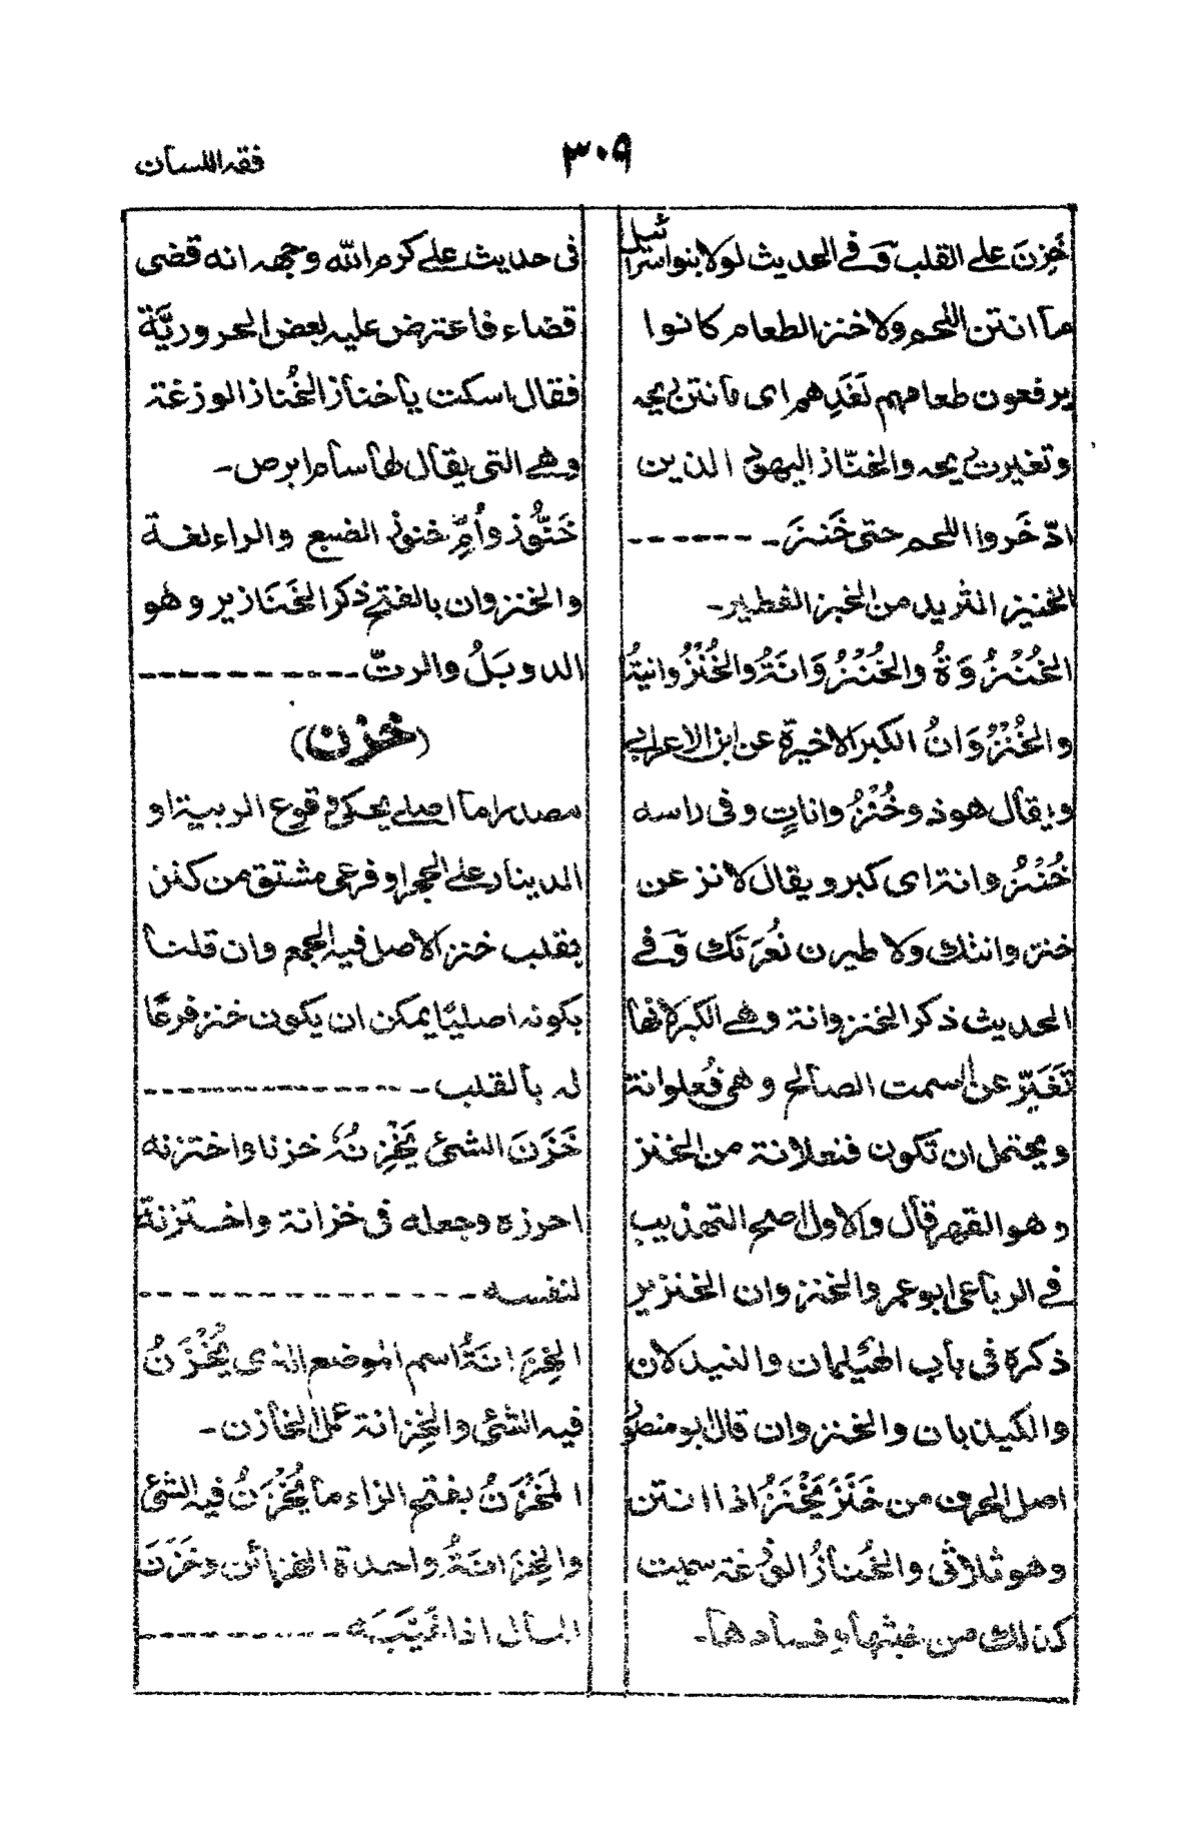 فقه اللسان
٣٠٩
خَزِنَ على القلب وَفى الحديث لولا بنوا اسرائيل
ما انتن اللحم ولا خنز الطعام كانوا
يرفعون طعامهم لغَدِهم اى ما نتن ريحه
وتغيرت ريحه والخنّاز اليهود الذين
ادّخَروا اللحم حتى خَنَزَ۔ ------
الخنيز الثريد من الخبز الفطير۔
الخُنْزُوَةُ والخُنْزُوَانَةُ والخُنْزُوانيةُ
والخُنْزُوَانُ الكبر الاخيرة عن ابن الاعرابى
ويقال هو ذو خُنْزُواناتٍ وفى راسه
خُنْزُوانة اى كبر ويقال لانزعن
خنزوانتك ولا طيرن نُعَرَتَك وَفى
الحديث ذكر الخنزوانة وهى الكبر لانها
تَغَيّر عن السمت الصالح وهى فُعلوانة
ويحتمل ان تكون فنعلانة من الخنز
وهو القهر قال والاول اصح التهذيب
فى الرباعى ابو عمر والخنزوان الخنزير
ذكره فى باب الهَيلمان والنيدلان
والكيذبان والخنزوان قال ابو منصور
اصل الحرف من خَنَزَ يَخْنَزُ اذا انتن
وهو ثلاثى والخُنازُ الوزغة سميت
كذلك من خبثها وفسادها۔
فى حديث على كرم الله وجهه انه قضى
قضاء فاعترض عليه بعض الحروريَّة
فقال اسكت يا خناز الخُناز الوزغة
وهى التى يقال لها سام ابرص۔
خَنُّوز وأمِّ خنوز الضبع والراء لغة
والخنزوان بالفتح ذكر الخَنَازير وهو
الدوبَلُ والرتّ ----------
(خزن)
مصدر اما اصلى يحكى وقوع الربية او
الدينار على الحجر او فرعى مشتق من كنز
بقلب خنز الاصل فيه الجمع وان قلنا
بكونه اصليًا يمكن ان يكون خنز فرعًا
له بالقلب۔ --------------
خَزَنَ الشئ يَخْزِنُهُ خزنا واختزنه
احرزه وجعله فى خزانة واختزنة
لنفسه۔ ---------------
الخِزَانَةُ اسم الموضع الذى يُخْزَنُ
فيه الشئى والخِزانة عمل الخازن۔
المَخْزَنُ بفتح الزاء ما يُخْزَنُ فيه الشئ
والخِزَانَةُ واحدة الخزائن وخَزَنَ
المال اذا غَيَّبَه ----------